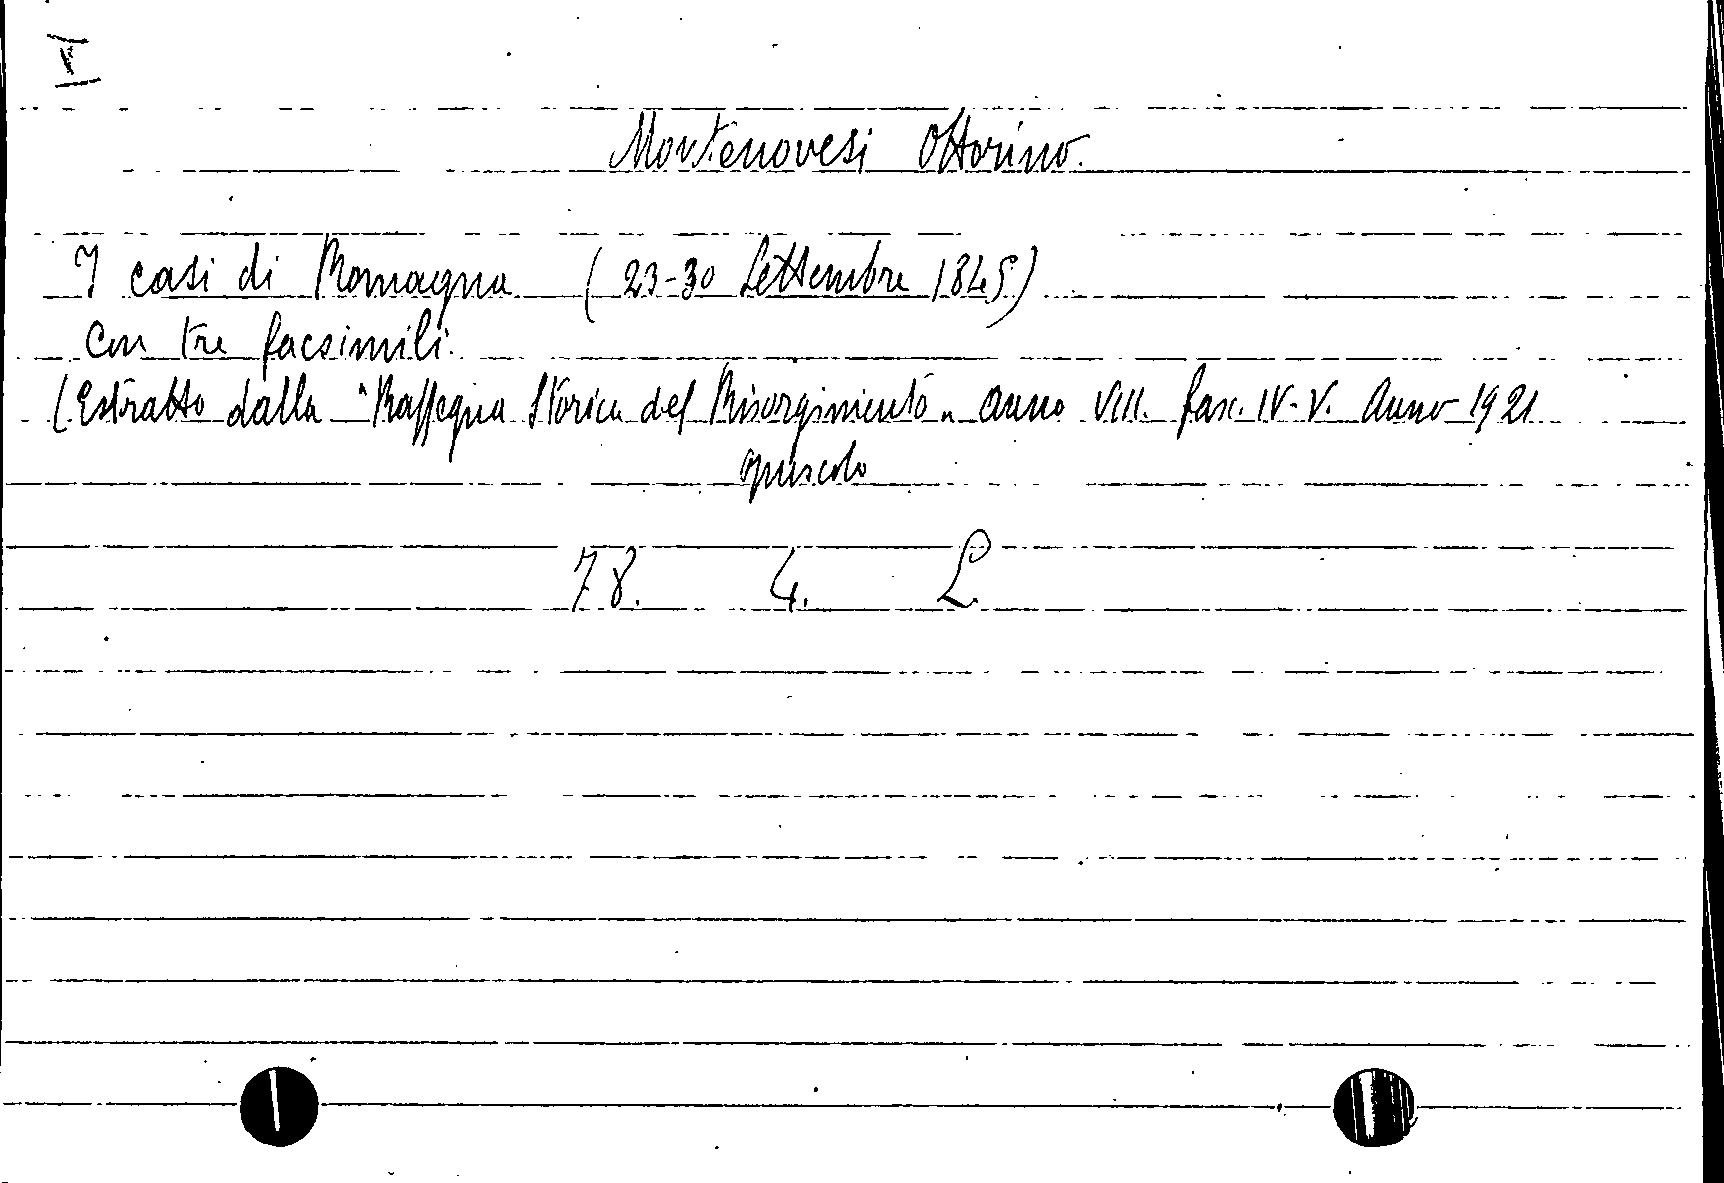 I
Montenovesi Ottorino.
I casi di Romagna (23-30 Settembre 1845)
con tre facsimili.
(Estratto dalla "Rassegna Storica del Risorgimento" anno VIII. fasc. IV-V. Anno 1921
opuscolo
78. 4. L.